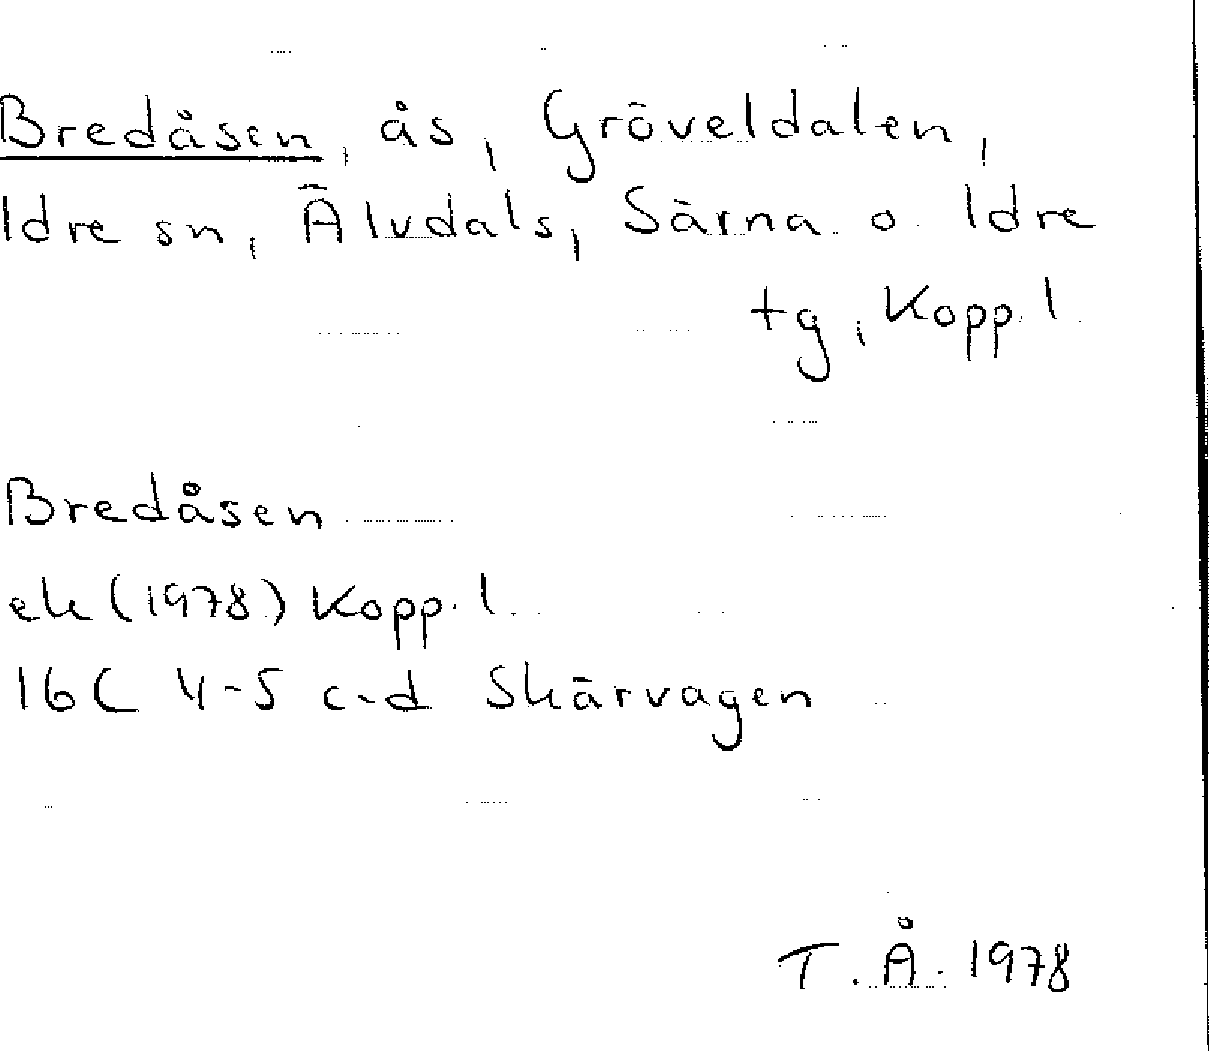 Bredåsen, ås, Gröveldalen,
Idre sn, Älvdals, Särna o Idre
tg, Kopp. l.
Bredåsen
ek (1978) Kopp. l.
16C 4-5 c-d Skärvagen
T. Å. 1978